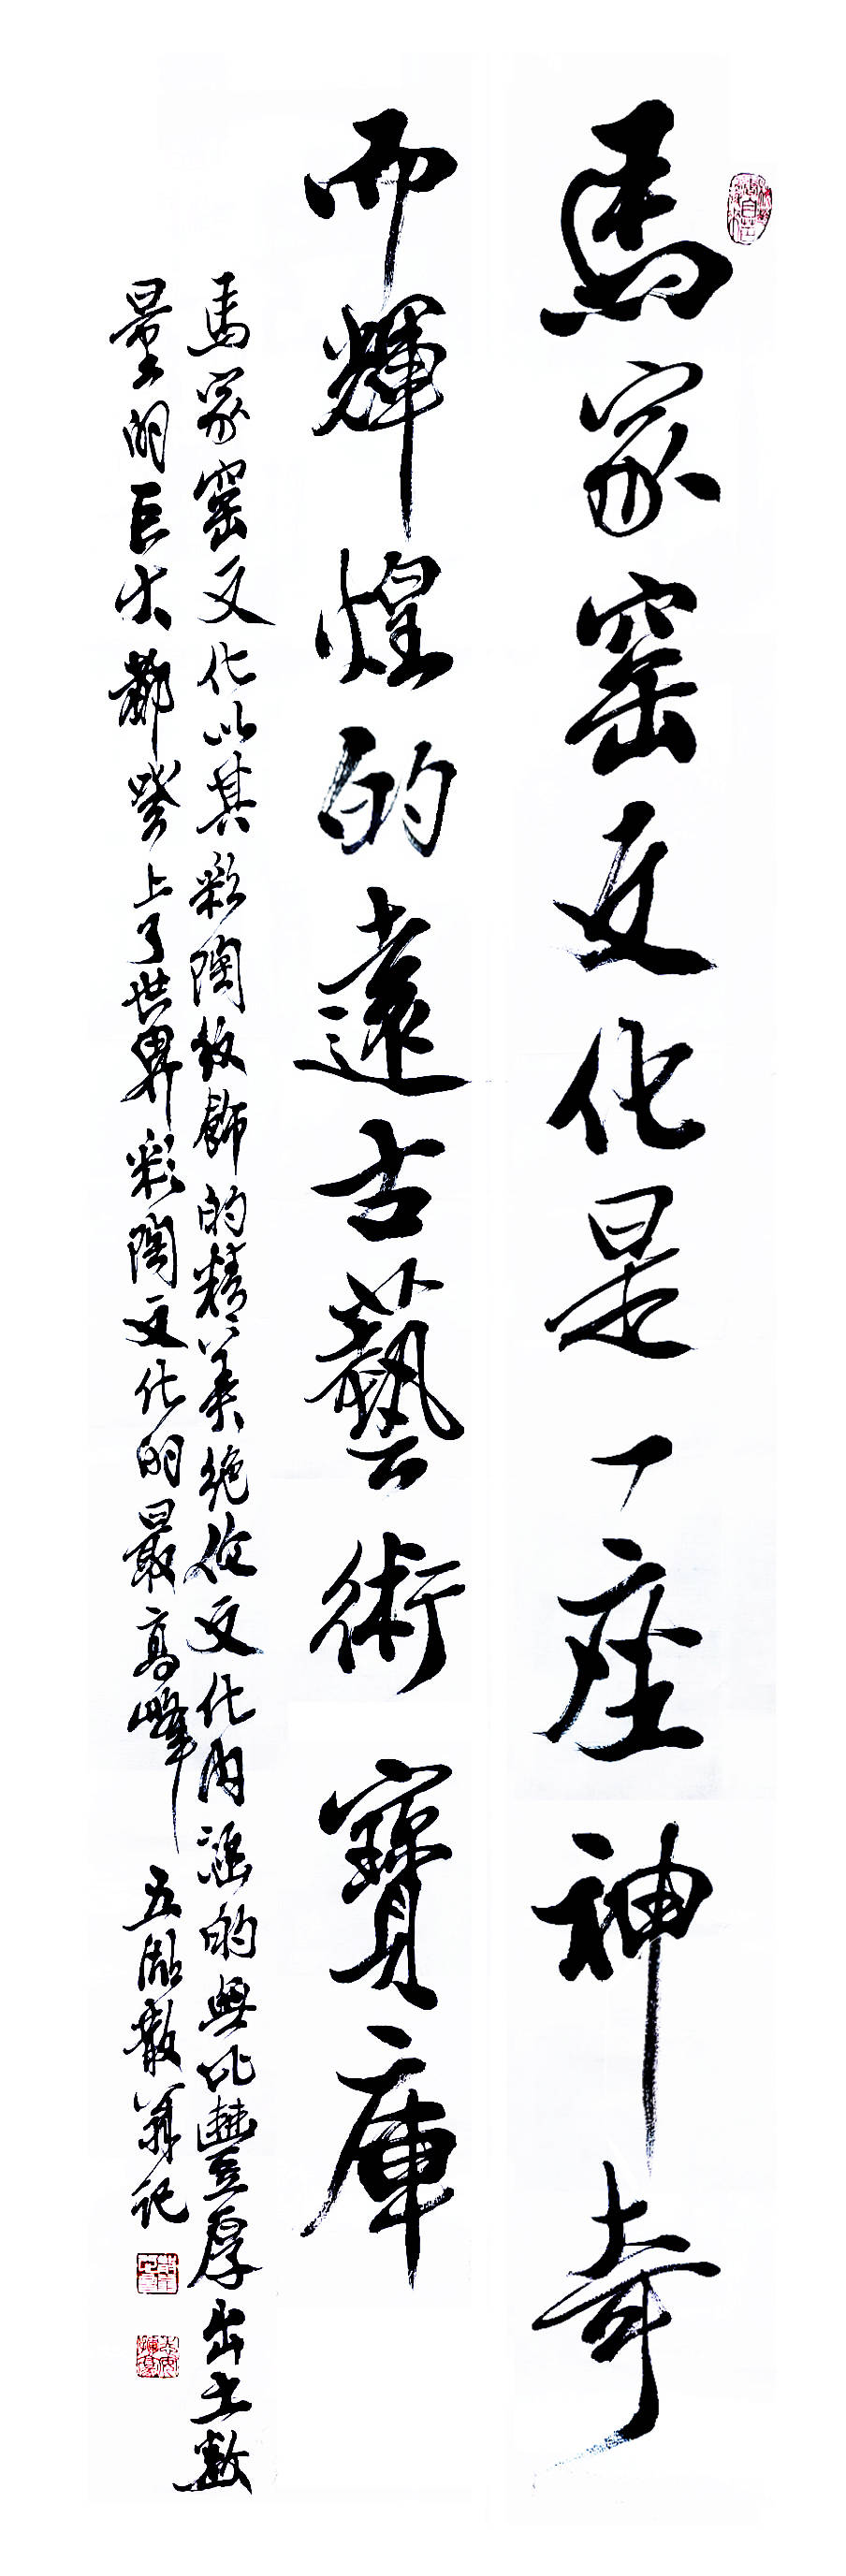 馬家窑文化是一座神奇
而輝煌的遠古藝術寶庫
馬家窑文化以其彩陶紋飾的精美絶倫文化内涵的無比豐厚出土數
量的巨大都登上了世界彩陶文化的最高峰 五湖散翁記